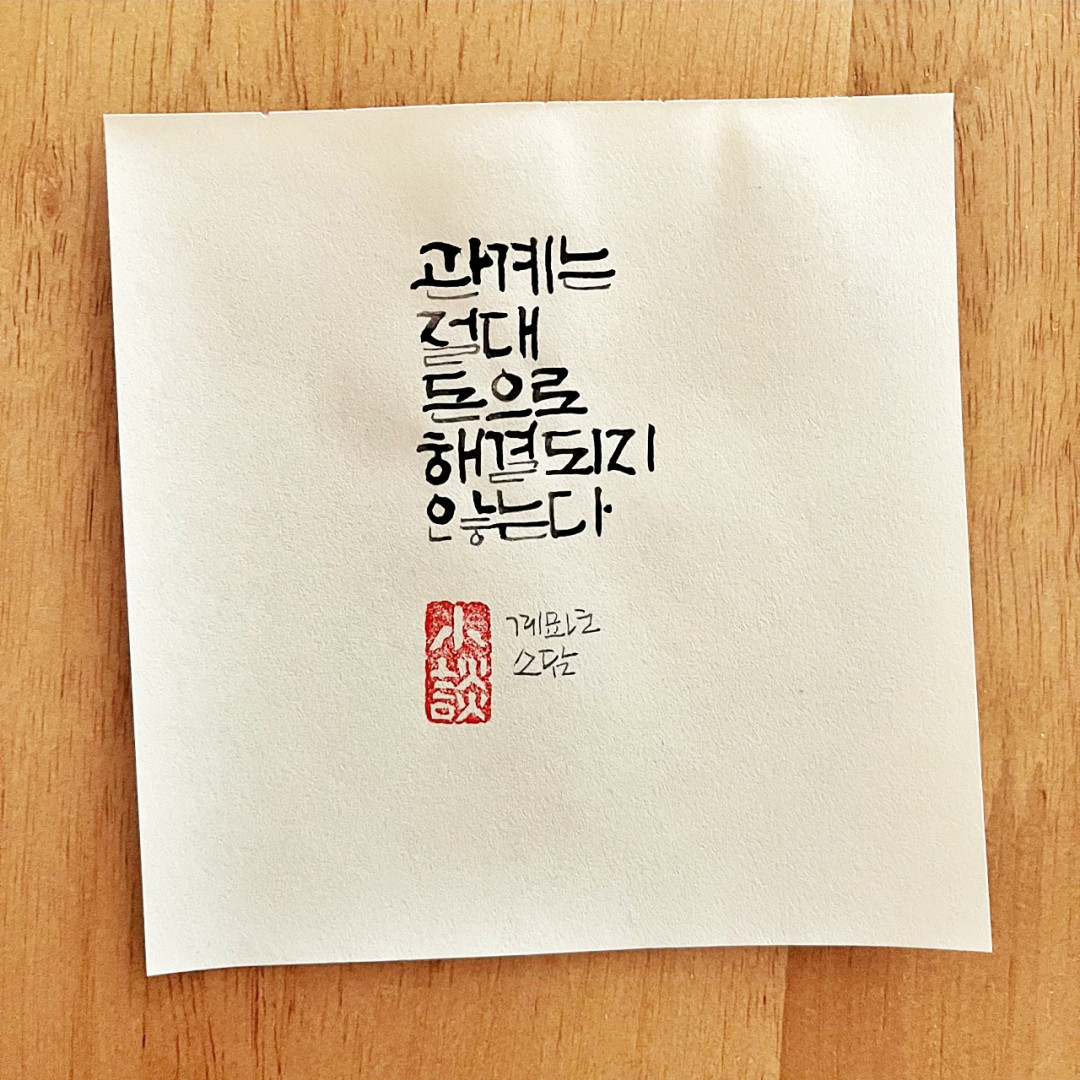 관계는
절대
돈으로
해결되지
않는다
小談
계묘초
소담